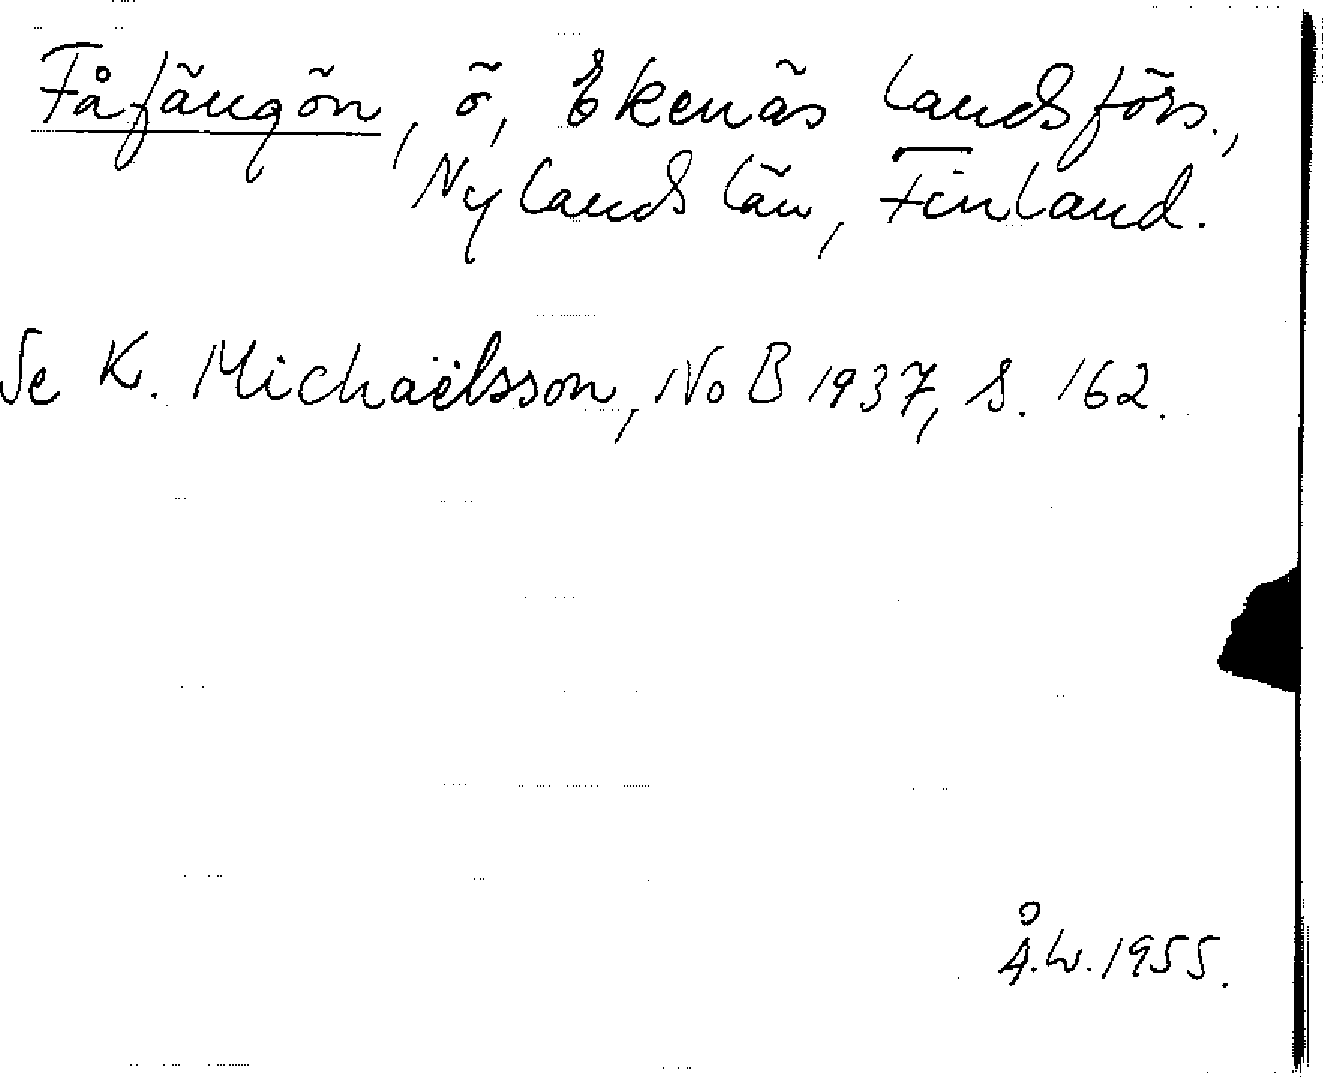 Fåfängön, ö, Ekenäs landsförs.,
Nylands län, Finland.
Se K. Michaëlsson, NoB 1937, s. 162.
Å.W. 1955.